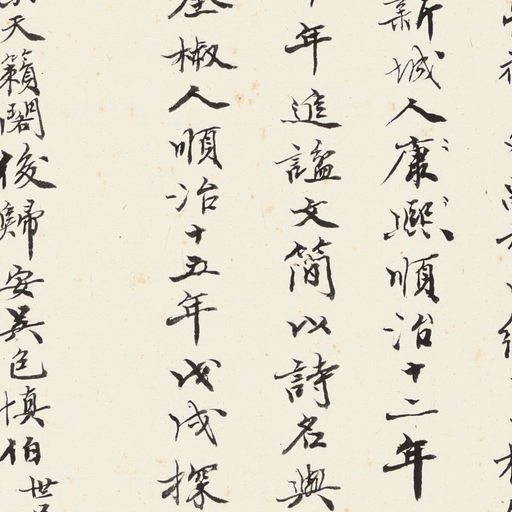 新城人康熙順治十二年
年追謚文簡以詩名與
全椒人順治十五年戊戌探
天籟閣後歸安吳包慎伯世